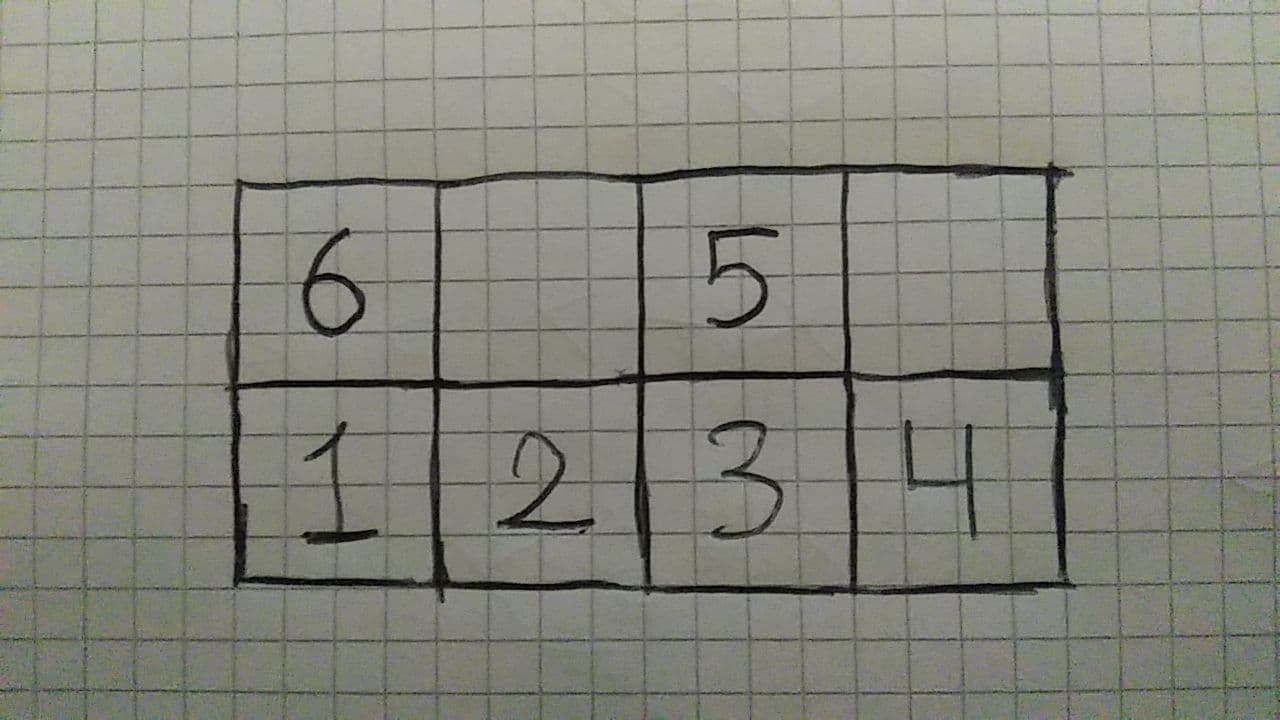 6 5
1 2 3 4